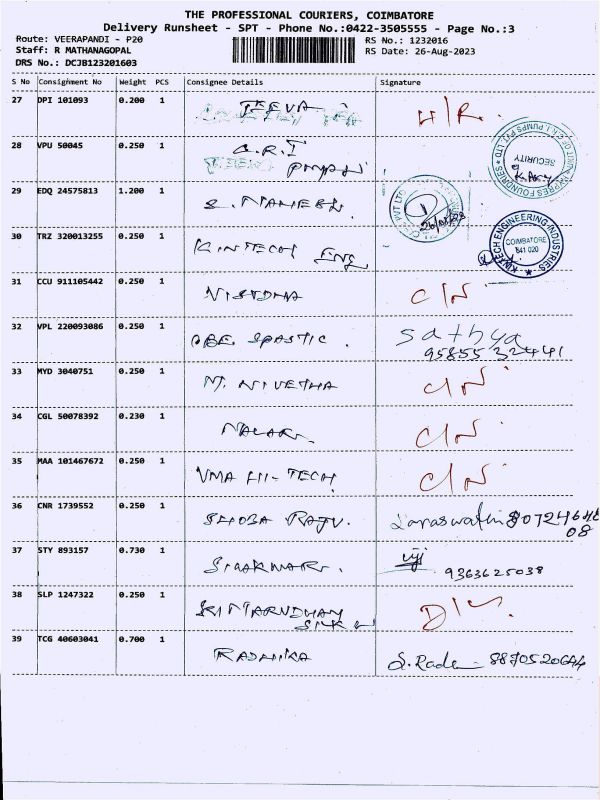 THE PROFESSIONAL COURIERS, COIMBATORE
Delivery Runsheet - SPT - Phone No.:0422-3505555 - Page No.:3
Route: VEERAPANDI - P20 RS No.: 1232016
Staff: R MATHANAGOPAL RS Date: 26-Aug-2023
DRS No.: DCJB123201603
S No Consignment No Weight PCS Consignee Details Signature
27 DPI 101093 0.200 1 H/R.
28 VPU 50045 0.250 1 C.R.I
PUMPS
SECURITY
29 EDQ 24575813 1.200 1 S. MAHESH.
26/08/23
30 TRZ 320013255 0.250 1 KINTECH ENG
KINTECH ENGINEERING INDUSTRIES
COIMBATORE
641 020
31 CCU 911105442 0.250 1 C/N
32 VPL 220093086 0.250 1 SPASTIC. Sathya
95855 32441
33 MYD 3040751 0.250 1 M. NIVETHA C/N
34 CGL 50078392 0.230 1 C/N
35 MAA 101467672 0.250 1 VMA HI-TECH C/N
36 CNR 1739552 0.250 1 SHOBA RAJU.
08
37 STY 893157 0.730 1 viji
9363625038
38 SLP 1247322 0.250 1 D/L.
39 TCG 40603041 0.700 1 RADHIKA